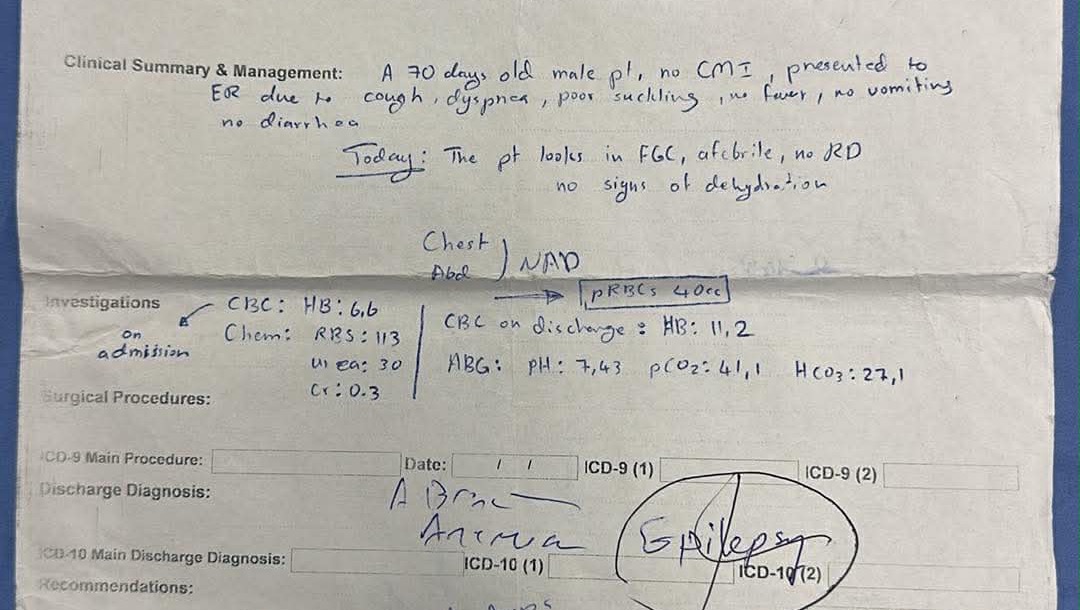 Clinical Summary & Management: A 70 days old male pt, no CMI, presented to
ER due to cough, dyspnea, poor suckling, no fever, no vomiting
no diarrhea
Today: The pt looks in FGC, afebrile, no RD
no signs of dehydration
Chest
Abd
NAD
pRBCs 40cc
Investigations
on
admission
CBC: HB: 6,6
Chem: RBS: 113
urea: 30
Cr: 0.3
CBC on discharge: HB: 11,2
ABG: pH: 7,43 pCO2: 41,1 HCO3: 27,1
Surgical Procedures:
ICD-9 Main Procedure: Date: / / ICD-9 (1) ICD-9 (2)
Discharge Diagnosis: A
Anemia
Epilepsy
ICD-10 Main Discharge Diagnosis: ICD-10 (1) ICD-10 (2)
Recommendations: